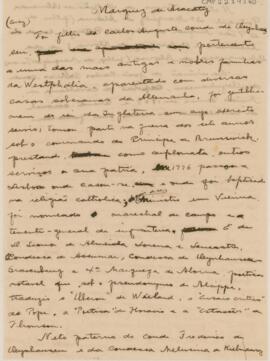 Marquez de Aracaty
Foi filho de Carlos Augusto, conde de Oeynhausen
pertencente
a uma das mais antigas e nobres familias
da Westphalia, aparentado com diversas
casas soberanas da Allemanha. foi gentilho-
mem do rei da Inglaterra em cujo
serviço, tomou parte na guerra dos sete annos
sob o commando do Principe de Brunswick
prestando como diplomata outros
serviços a sua patria. Em 1776 passou a
Lisboa onde casou-se e onde foi baptisado
na religião catholica, ministro em Vienna
foi nomeado marechal de campo e
tenente-general da infantaria. e de
D. Leonor de Almeida Lorena e Lencastre,
Condessa de Assumar, Condessa de Oeynhausen
Gravenburg e 4ª Marqueza de Alorna, poetisa
notavel que sob o pseudonymo de Alcippe,
traduziu o Oberon de Wieland, o "Ensaio critico"
de Pope, a "Poetica" de Horacio e a "Estações" de
Thomson.
Neto paterno do conde Frederico de
Oeynhausen e da Condessa Melusina